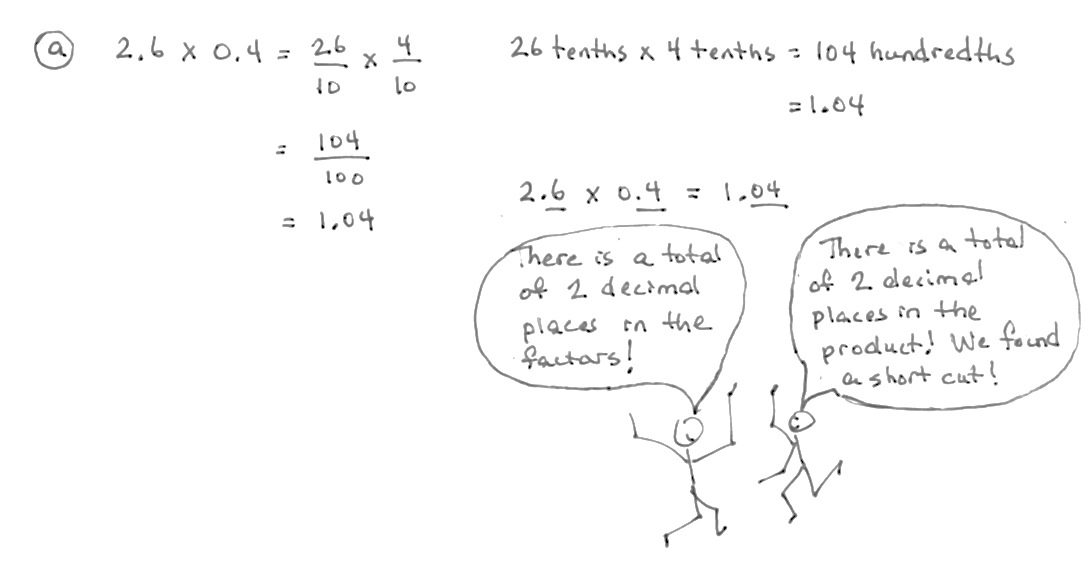 ⓐ 2.6 x 0.4 = 26/10 x 4/10
= 104/100
= 1.04
26 tenths x 4 tenths = 104 hundredths
= 1.04
2.6 x 0.4 = 1.04
There is a total
of 2 decimal
places in the
factors!
There is a total
of 2 decimal
places in the
product! We found
a short cut!